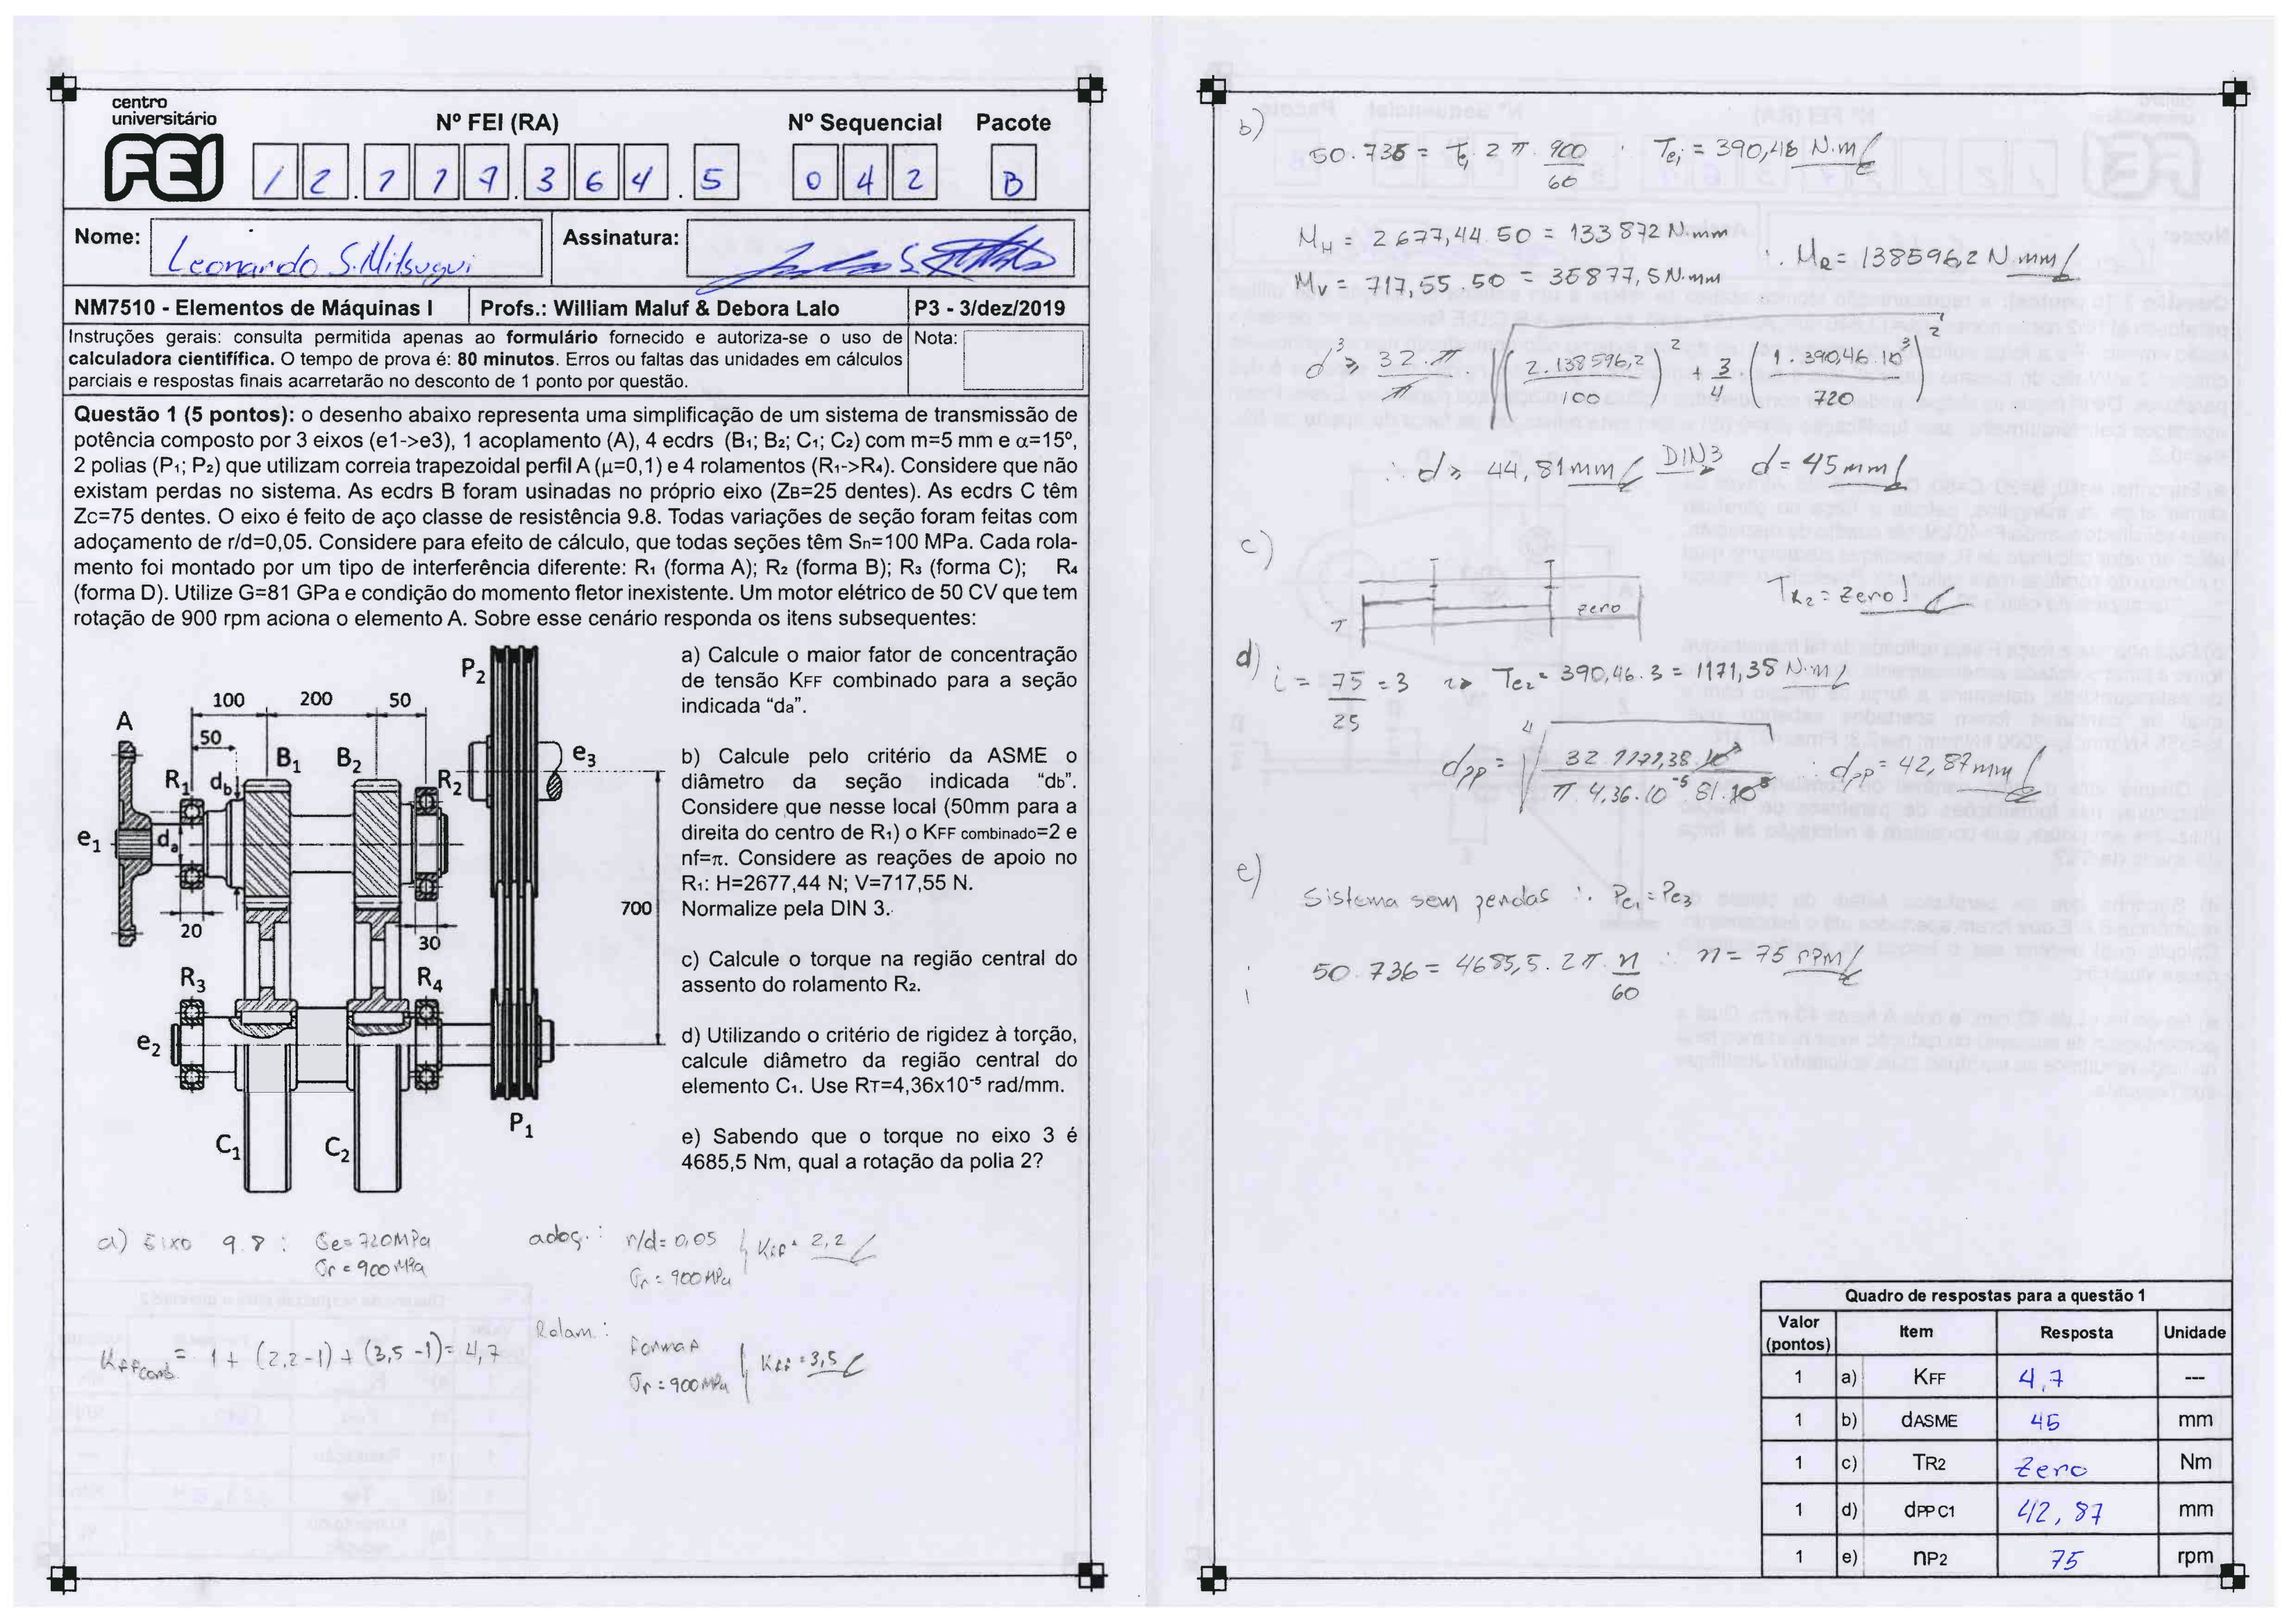 centro
universitário
FEI
Nº FEI (RA)
Nº Sequencial
Pacote
12.777.364.5
042
B
Nome:
Leonardo S. Mitsugui
Assinatura:
NM7510 - Elementos de Máquinas I
Profs.: William Maluf & Debora Lalo
P3 - 3/dez/2019
Instruções gerais: consulta permitida apenas ao formulário fornecido e autoriza-se o uso de
calculadora cientifífica. O tempo de prova é: 80 minutos. Erros ou faltas das unidades em cálculos
parciais e respostas finais acarretarão no desconto de 1 ponto por questão.
Nota:
Questão 1 (5 pontos): o desenho abaixo representa uma simplificação de um sistema de transmissão de
potência composto por 3 eixos (e1->e3), 1 acoplamento (A), 4 ecdrs (B1; B2; C1; C2) com m=5 mm e α=15º,
2 polias (P1; P2) que utilizam correia trapezoidal perfil A (μ=0,1) e 4 rolamentos (R1->R4). Considere que não
existam perdas no sistema. As ecdrs B foram usinadas no próprio eixo (ZB=25 dentes). As ecdrs C têm
Zc=75 dentes. O eixo é feito de aço classe de resistência 9.8. Todas variações de seção foram feitas com
adoçamento de r/d=0,05. Considere para efeito de cálculo, que todas seções têm Sn=100 MPa. Cada rola-
mento foi montado por um tipo de interferência diferente: R1 (forma A); R2 (forma B); R3 (forma C); R4
(forma D). Utilize G=81 GPa e condição do momento fletor inexistente. Um motor elétrico de 50 CV que tem
rotação de 900 rpm aciona o elemento A. Sobre esse cenário responda os itens subsequentes:
P2
100 200 50
A
50
B1 B2
R1 db
R2
e3
e1
da
700
20
30
R3
R4
e2
P1
C1
C2
a) Calcule o maior fator de concentração
de tensão KFF combinado para a seção
indicada “da”.
b) Calcule pelo critério da ASME o
diâmetro da seção indicada “db”.
Considere que nesse local (50mm para a
direita do centro de R1) o KFF combinado=2 e
nf=π. Considere as reações de apoio no
R1: H=2677,44 N; V=717,55 N.
Normalize pela DIN 3.
c) Calcule o torque na região central do
assento do rolamento R2.
d) Utilizando o critério de rigidez à torção,
calcule diâmetro da região central do
elemento C1. Use RT=4,36x10⁻⁵ rad/mm.
e) Sabendo que o torque no eixo 3 é
4685,5 Nm, qual a rotação da polia 2?
a) Eixo 9.8: σe=720MPa
σr=900MPa
adoç.: r/d=0,05
σr=900MPa
Kff=2,2
Kffcomb.= 1+(2,2-1)+(3,5-1)=4,7
Rolam:
Forma A
σr=900MPa
Kff=3,5
b)
50.736 = Te1 2π.900/60 ∴ Te1=390,46 N.m
MH = 2677,44.50 = 133872 N.mm
MV = 717,55.50 = 35877,5 N.mm
∴ MR=138596,2 N mm
d³ ≥ 32.π/π . √((2.138596,2/100)² + 3/4 (1.390,46.10³/720)²)
∴ d ≥ 44,81mm DIN3 d=45mm
c)
T
zero
TR2=zero!
d) i = 75/25 = 3 => Te2=390,46.3=1171,38 N.m
dpp = ⁴√(32.1171,38.10³/π.4,36.10⁻⁵.81.10³) ∴ dpp=42,87mm
e)
Sistema sem perdas ∴ Pe1=Pe3
50.736 = 4685,5.2π.n/60 ∴ n=75 RPM
Quadro de respostas para a questão 1
Valor (pontos) Item Resposta Unidade
1 a) KFF 4,7 ---
1 b) dASME 45 mm
1 c) TR2 Zero Nm
1 d) dPP C1 42,87 mm
1 e) nP2 75 rpm